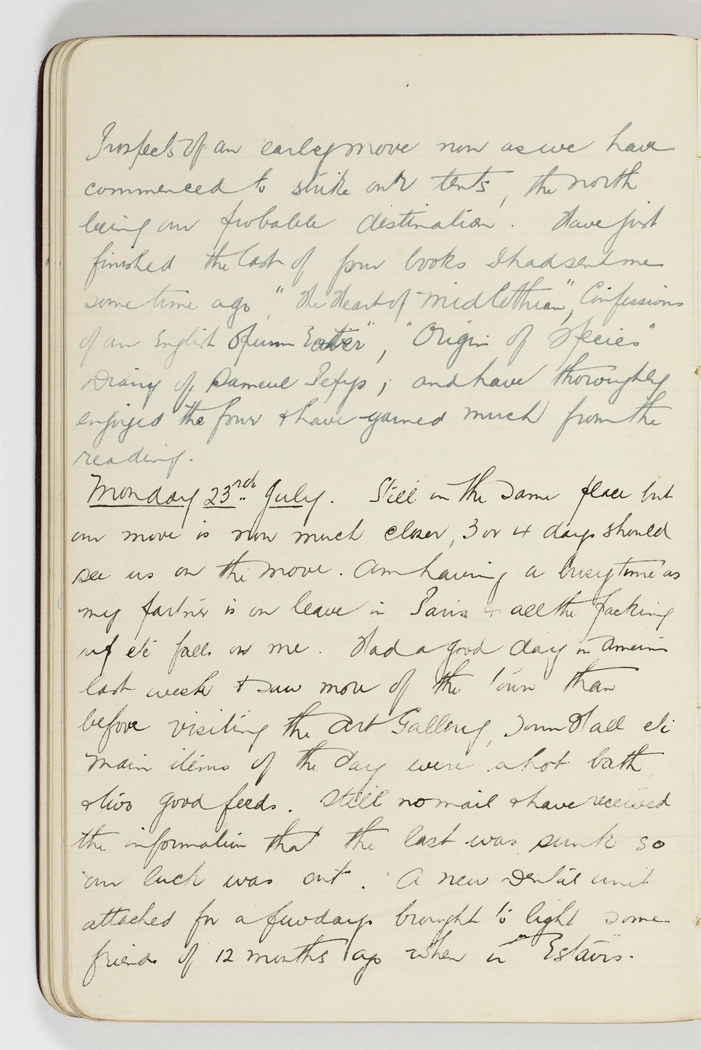 Prospects of an early move now as we have
commenced to strike our tents, the north
being our probable destination. Have just
finished the last of four books I had sent me
some time ago, "The Heart of Midlothian", Confessions
of an English Opium Eater", "Origin of Species"
Diary of Sameul Pepys; and have thoroughly
enjoyed the four & have gained much from the
reading.
Monday 23rd July. Still in the same place but
our move is now much closer, 3 or 4 days should
see us on the move. Am having a busy time as
my partner is on leave in Paris & all the packing
up etc falls on me. Had a good day in Amiens
last week & saw more of the town than
before visiting the Art Gallery, Town Hall etc
main items of the day were a hot bath
& two good feeds. Still no mail & have received
the information that the last was sunk so
our luck was out. A new Dental unit
attached for a few days brought to light some
friends of 12 months ago when in "Estairs.